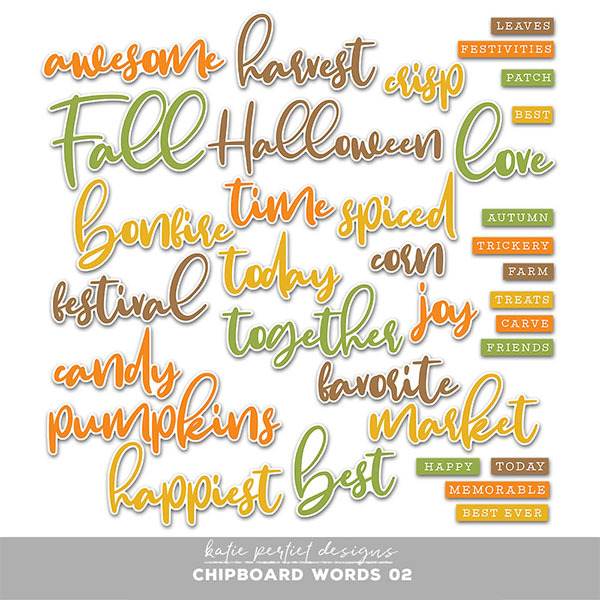 awesome
harvest
crisp
LEAVES
FESTIVITIES
PATCH
BEST
Fall
Halloween
love
bonfire
time
spiced
AUTUMN
TRICKERY
FARM
TREATS
CARVE
FRIENDS
today
corn
festival
together
joy
candy
favorite
pumpkins
market
happiest
best
HAPPY
TODAY
MEMORABLE
BEST EVER
katie pertiet designs
CHIPBOARD WORDS 02